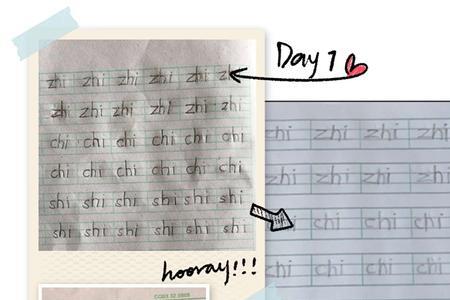 Day 1
zhi zhi zhi zhi zhi zh
zhi zhi zhi zhi zhi zhi
chi chi chi chi chi chi
chi chi chi chi chi chi
shi shi shi shi shi shi
shi shi shi shi shi shi
hooray!!!
hi zhi zhi zhi
zhi zhi zhi zhi
chi chi chi
chi chi chi chi